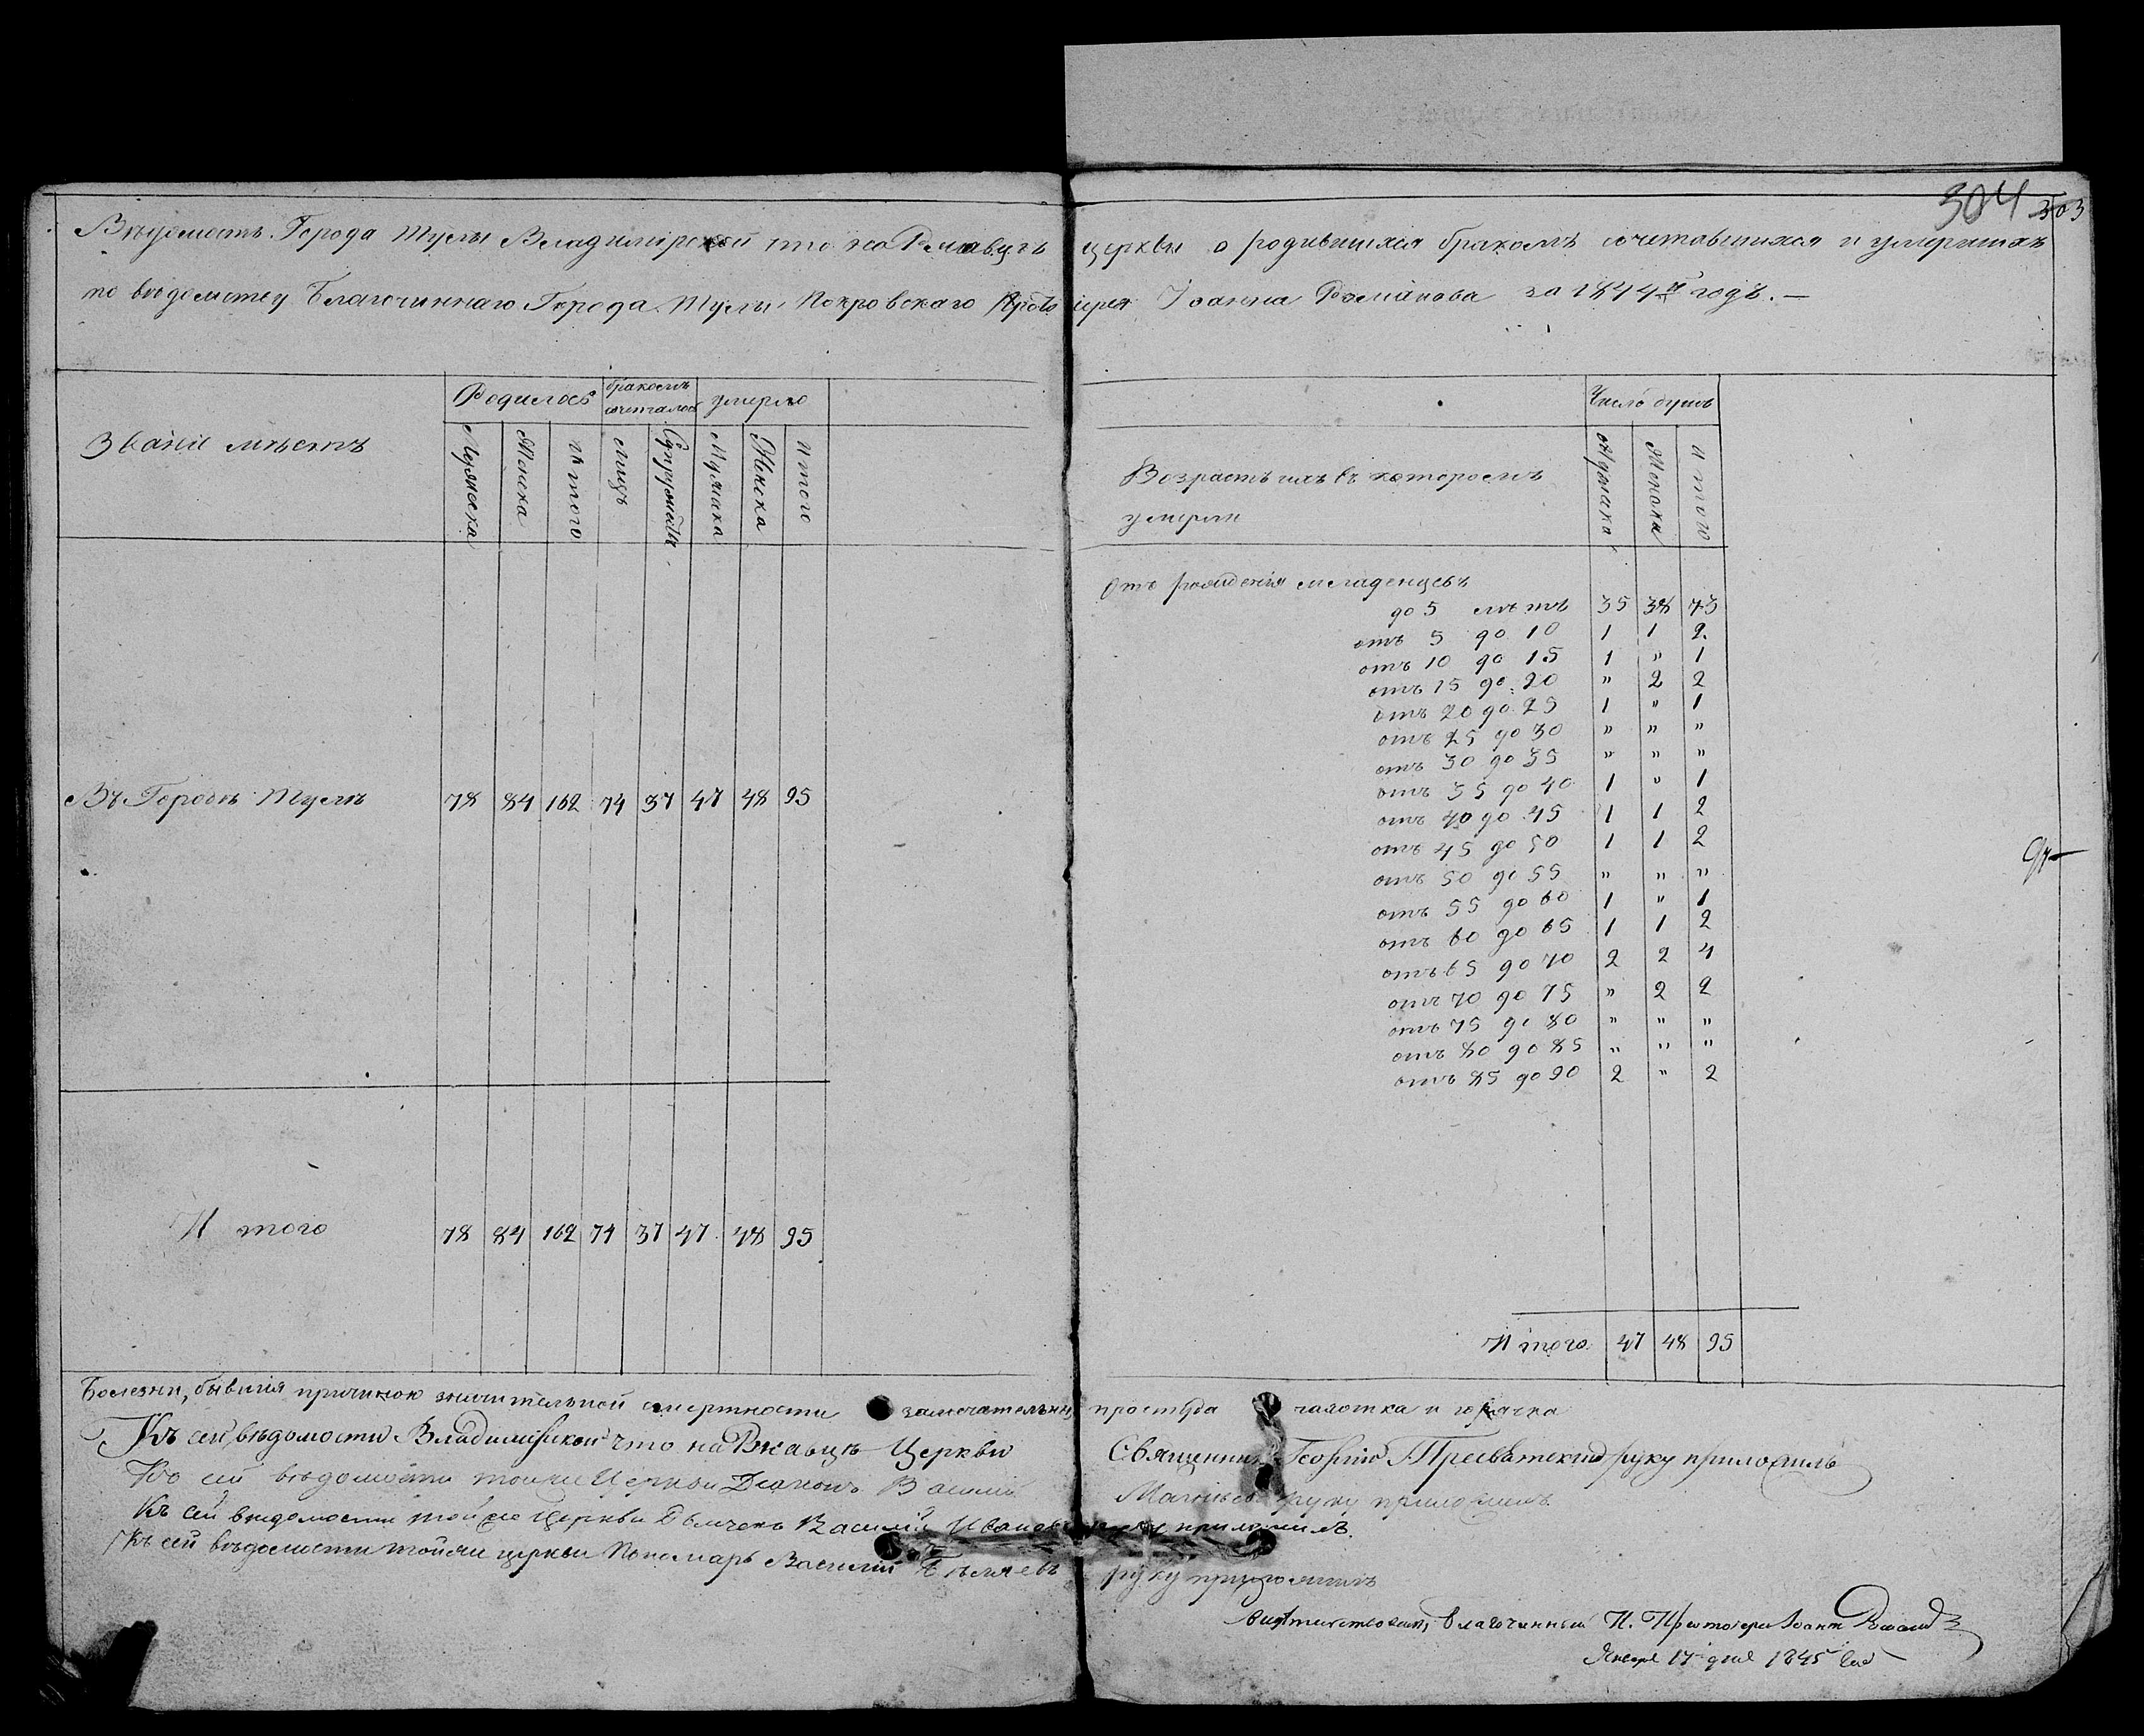 304 303
Вѣдомость Города Тулы Владимирской что на Ржавцѣ церкви о родившихся бракомъ сочетавшихся и умершихъ
по вѣдомству Благочиннаго Города Тулы Покровскаго Протоіерея Іоанна Романова за 1844й годъ. —
Званіе мѣстъ
Родилось бракомъ сочеталось умерло
Мужеска Женска Итого лицъ Супружествъ Мужеска Женска Итого
Въ Городѣ Тулѣ 78 84 162 74 37 47 48 95
Итого 78 84 162 74 37 47 48 95
Число душъ
Возрастъ ихъ въ которомъ умерли
Мужеска Женска Итого
Отъ рожденія младенцевъ
до 5 лѣтъ 35 38 73
отъ 5 до 10 1 1 2
отъ 10 до 15 1 " 1
отъ 15 до 20 " 2 2
отъ 20 до 25 1 " 1
отъ 25 до 30 " " "
отъ 30 до 35 " " "
отъ 35 до 40 1 " 1
отъ 40 до 45 1 1 2
отъ 45 до 50 1 1 2
отъ 50 до 55 " " "
отъ 55 до 60 1 " 1
отъ 60 до 65 1 1 2
отъ 65 до 70 2 2 4
отъ 70 до 75 " 2 2
отъ 75 до 80 " " "
отъ 80 до 85 " " "
отъ 85 до 90 2 " 2
Итого 47 48 95
Болезни, бывшія причиною значительной смертности замѣчательны простуда чахотка и горячка
Къ сей вѣдомости Владимірской что на Ржавцѣ Церкви Священникъ Георгій руку приложилъ
Къ сей вѣдомости тойже Церкви Діаконъ Василий руку приложилъ
Къ сей вѣдомости тойже Церкви Дьячекъ Василій Ивановъ руку приложилъ.
Къ сей вѣдомости тойже церкви Пономарь Василій Бѣляевъ руку приложилъ
Свидѣтельствовалъ, Благочинный П. Протоіерей Іоаннъ Романовъ
Января 17 дня 1845 года